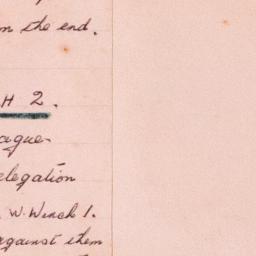 in the end.
H 2.
ague
elegation
W. Winch 1.
against them